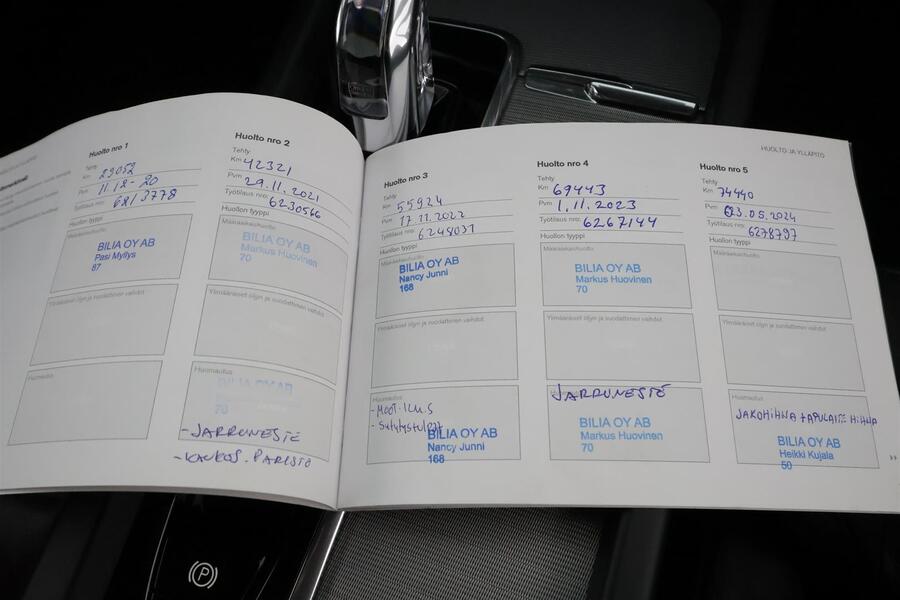 HUOLTO JA YLLÄPITO
Huolto nro 1
Tehty
Km 29052
Pvm 11.12-20
Työtilaus nro 6213778
Huollon tyyppi
Määräaikaishuolto
BILIA OY AB
Pasi Myllys
87
Ylimääräiset öljyn ja suodattimen vaihdot
Huomautus
Huolto nro 2
Tehty
Km 42321
Pvm 29.11.2021
Työtilaus nro 6230566
Huollon tyyppi
Määräaikaishuolto
BILIA OY AB
Markus Huovinen
70
Ylimääräiset öljyn ja suodattimen vaihdot
Huomautus
BILIA OY AB
70
-JARRUNESTE
-KAUKOS.PARISTO
Huolto nro 3
Tehty
Km 55924
Pvm 17.11.2022
Työtilaus nro 6249031
Huollon tyyppi
Määräaikaishuolto
BILIA OY AB
Nancy Junni
168
Ylimääräiset öljyn ja suodattimen vaihdot
Huomautus
BILIA OY AB
Nancy Junni
168
Huolto nro 4
Tehty
Km 69443
Pvm 1.11.2023
Työtilaus nro 6267144
Huollon tyyppi
Määräaikaishuolto
BILIA OY AB
Markus Huovinen
70
Ylimääräiset öljyn ja suodattimen vaihdot
JARRUNESTE
BILIA OY AB
Markus Huovinen
70
Huolto nro 5
Tehty
Km 74440
Pvm 03.05.2024
Työtilaus nro 6278797
Huollon tyyppi
Määräaikaishuolto
Ylimääräiset öljyn ja suodattimen vaihdot
Huomautus
JAKOHIHNA +APULAITE HIHNA
BILIA OY AB
Heikki Kujala
50
»
P